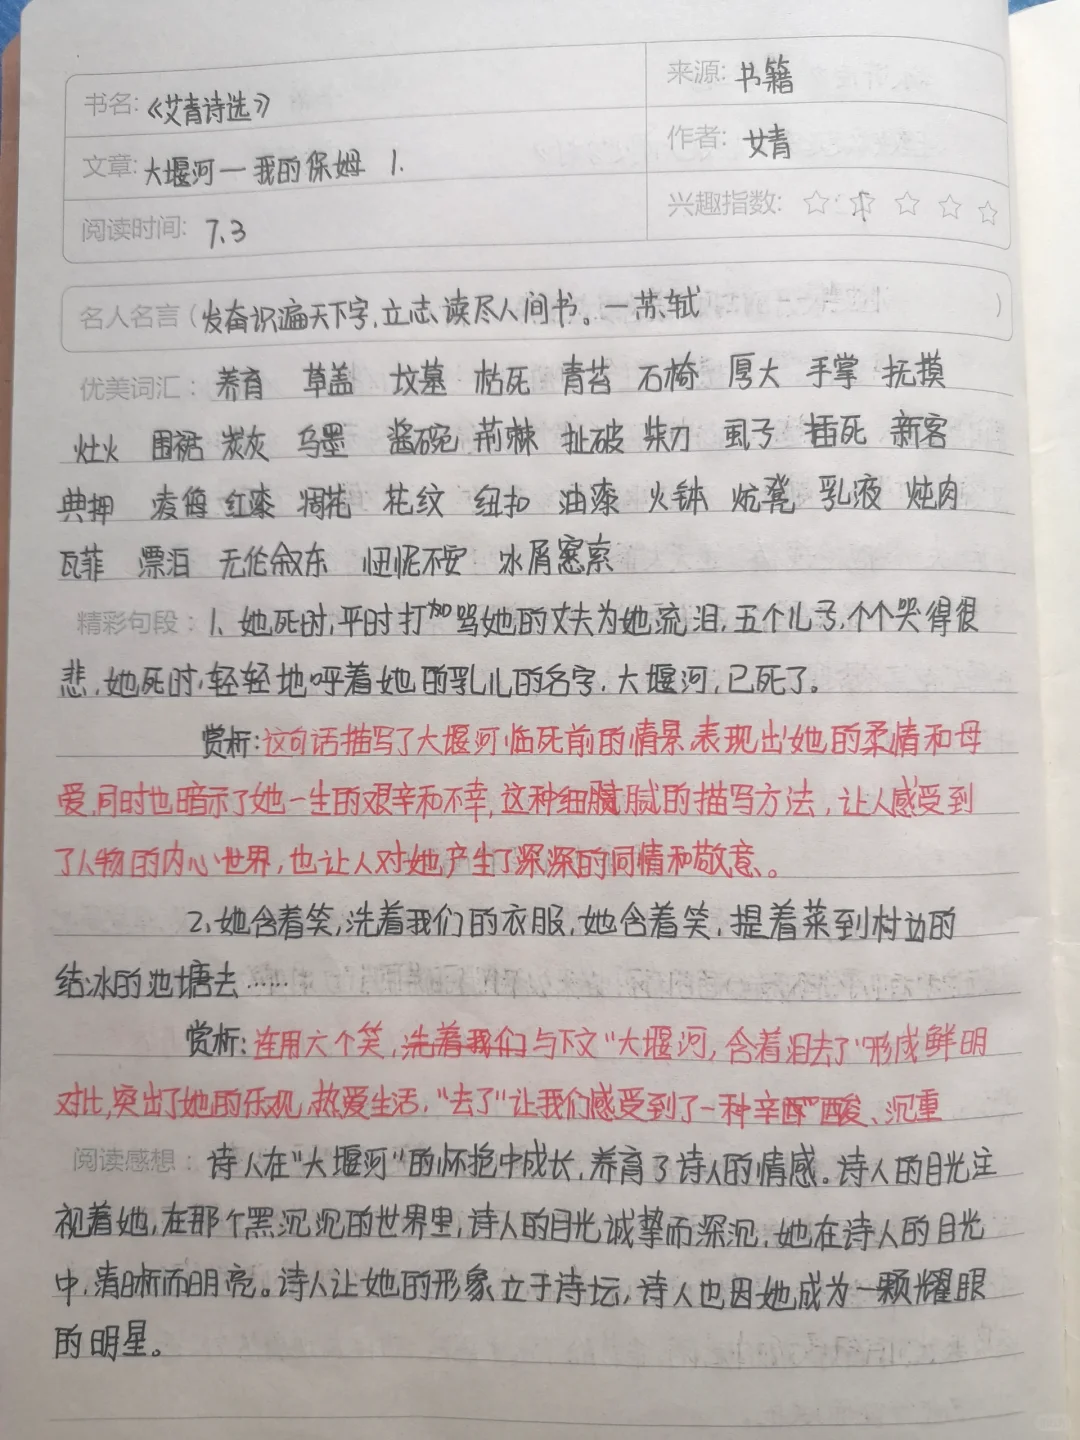 书名:《艾青诗选》
来源: 书籍
文章: 大堰河一我的保姆 1.
作者: 艾青
阅读时间: 7.3
兴趣指数:
名人名言(发奋识遍天下字,立志读尽人间书。一苏轼)
优美词汇: 养育 草盖 坟墓 枯死 青苔 石椅 厚大 手掌 抚摸
灶火 围裙 炭灰 乌墨 酱碗 荆棘 扯破 柴刀 虱子 掐死 新客
典押 凌侮 红漆 花纹 纽扣 油漆 火钵 炕凳 乳液 炖肉
瓦菲 漂泊 无伦叙东 忸怩不安 冰屑窸索
精彩句段: 1、她死时,平时打加骂她的丈夫为她流泪,五个儿子,个个哭得很
悲,她死时,轻轻地呼着她的乳儿的名字,大堰河,已死了。
赏析:这句话描写了大堰河临死前的情景,表现出她的柔情和母
爱,同时也暗示了她一生的艰辛和不幸,这种细腻腻的描写方法,让人感受到
了人物的内心世界,也让人对她产生了深深的同情和敬意。
2、她含着笑,洗着我们的衣服,她含着笑,提着菜到村边的
结冰的池塘去……
赏析:连用六个笑,洗着我们与下文“大堰河,含着泪去了”形成鲜明
对比,突出了她的乐观,热爱生活,“去了”让我们感受到了一种辛酸、沉重
阅读感想: 诗人在“大堰河”的怀抱中成长,养育了诗人的情感。诗人的目光注
视着她,在那个黑沉沉的世界里,诗人的目光诚挚而深沉,她在诗人的目光
中,清晰而明亮。诗人让她的形象立于诗坛,诗人也因她成为一颗耀眼
的明星。